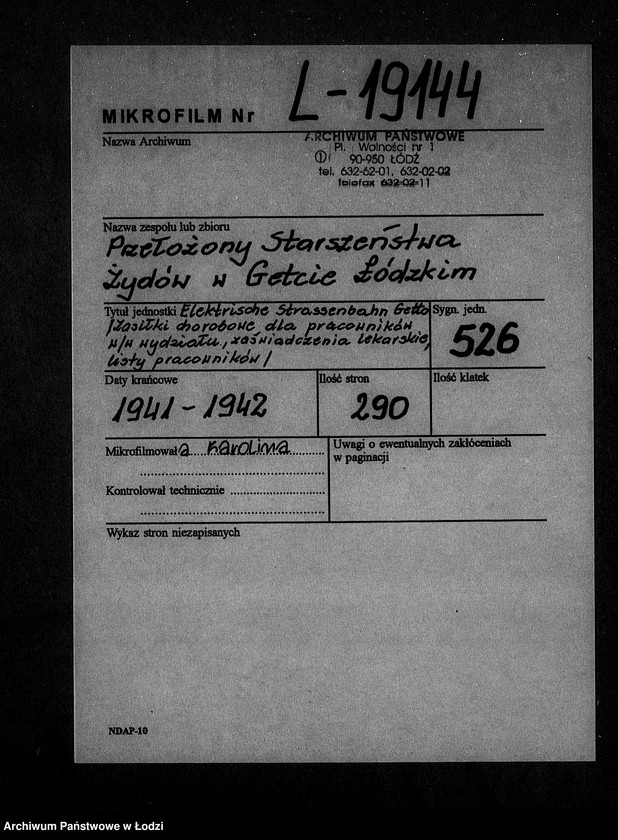 MIKROFILM Nr L-19144
Nazwa Archiwum
ARCHIWUM PAŃSTWOWE
Pl. Wolności nr 1
90-950 ŁÓDŹ
tel. 632-62-01, 632-02-02
telefax 632-02-11
Nazwa zespołu lub zbioru
Przełożony Starszeństwa
Żydów w Getcie Łódzkim
Tytuł jednostki Elektrische Strassenbahn Getto
/Zasiłki chorobowe dla pracowników
w/w wydziału, zaświadczenia lekarskie,
listy pracowników/
Sygn. jedn.
526
Daty krańcowe
1941 - 1942
Ilość stron
290
Ilość klatek
Mikrofilmował a Karolina
Kontrolował technicznie
Uwagi o ewentualnych zakłóceniach
w paginacji
Wykaz stron niezapisanych
NDAP-10
Archiwum Państwowe w Łodzi